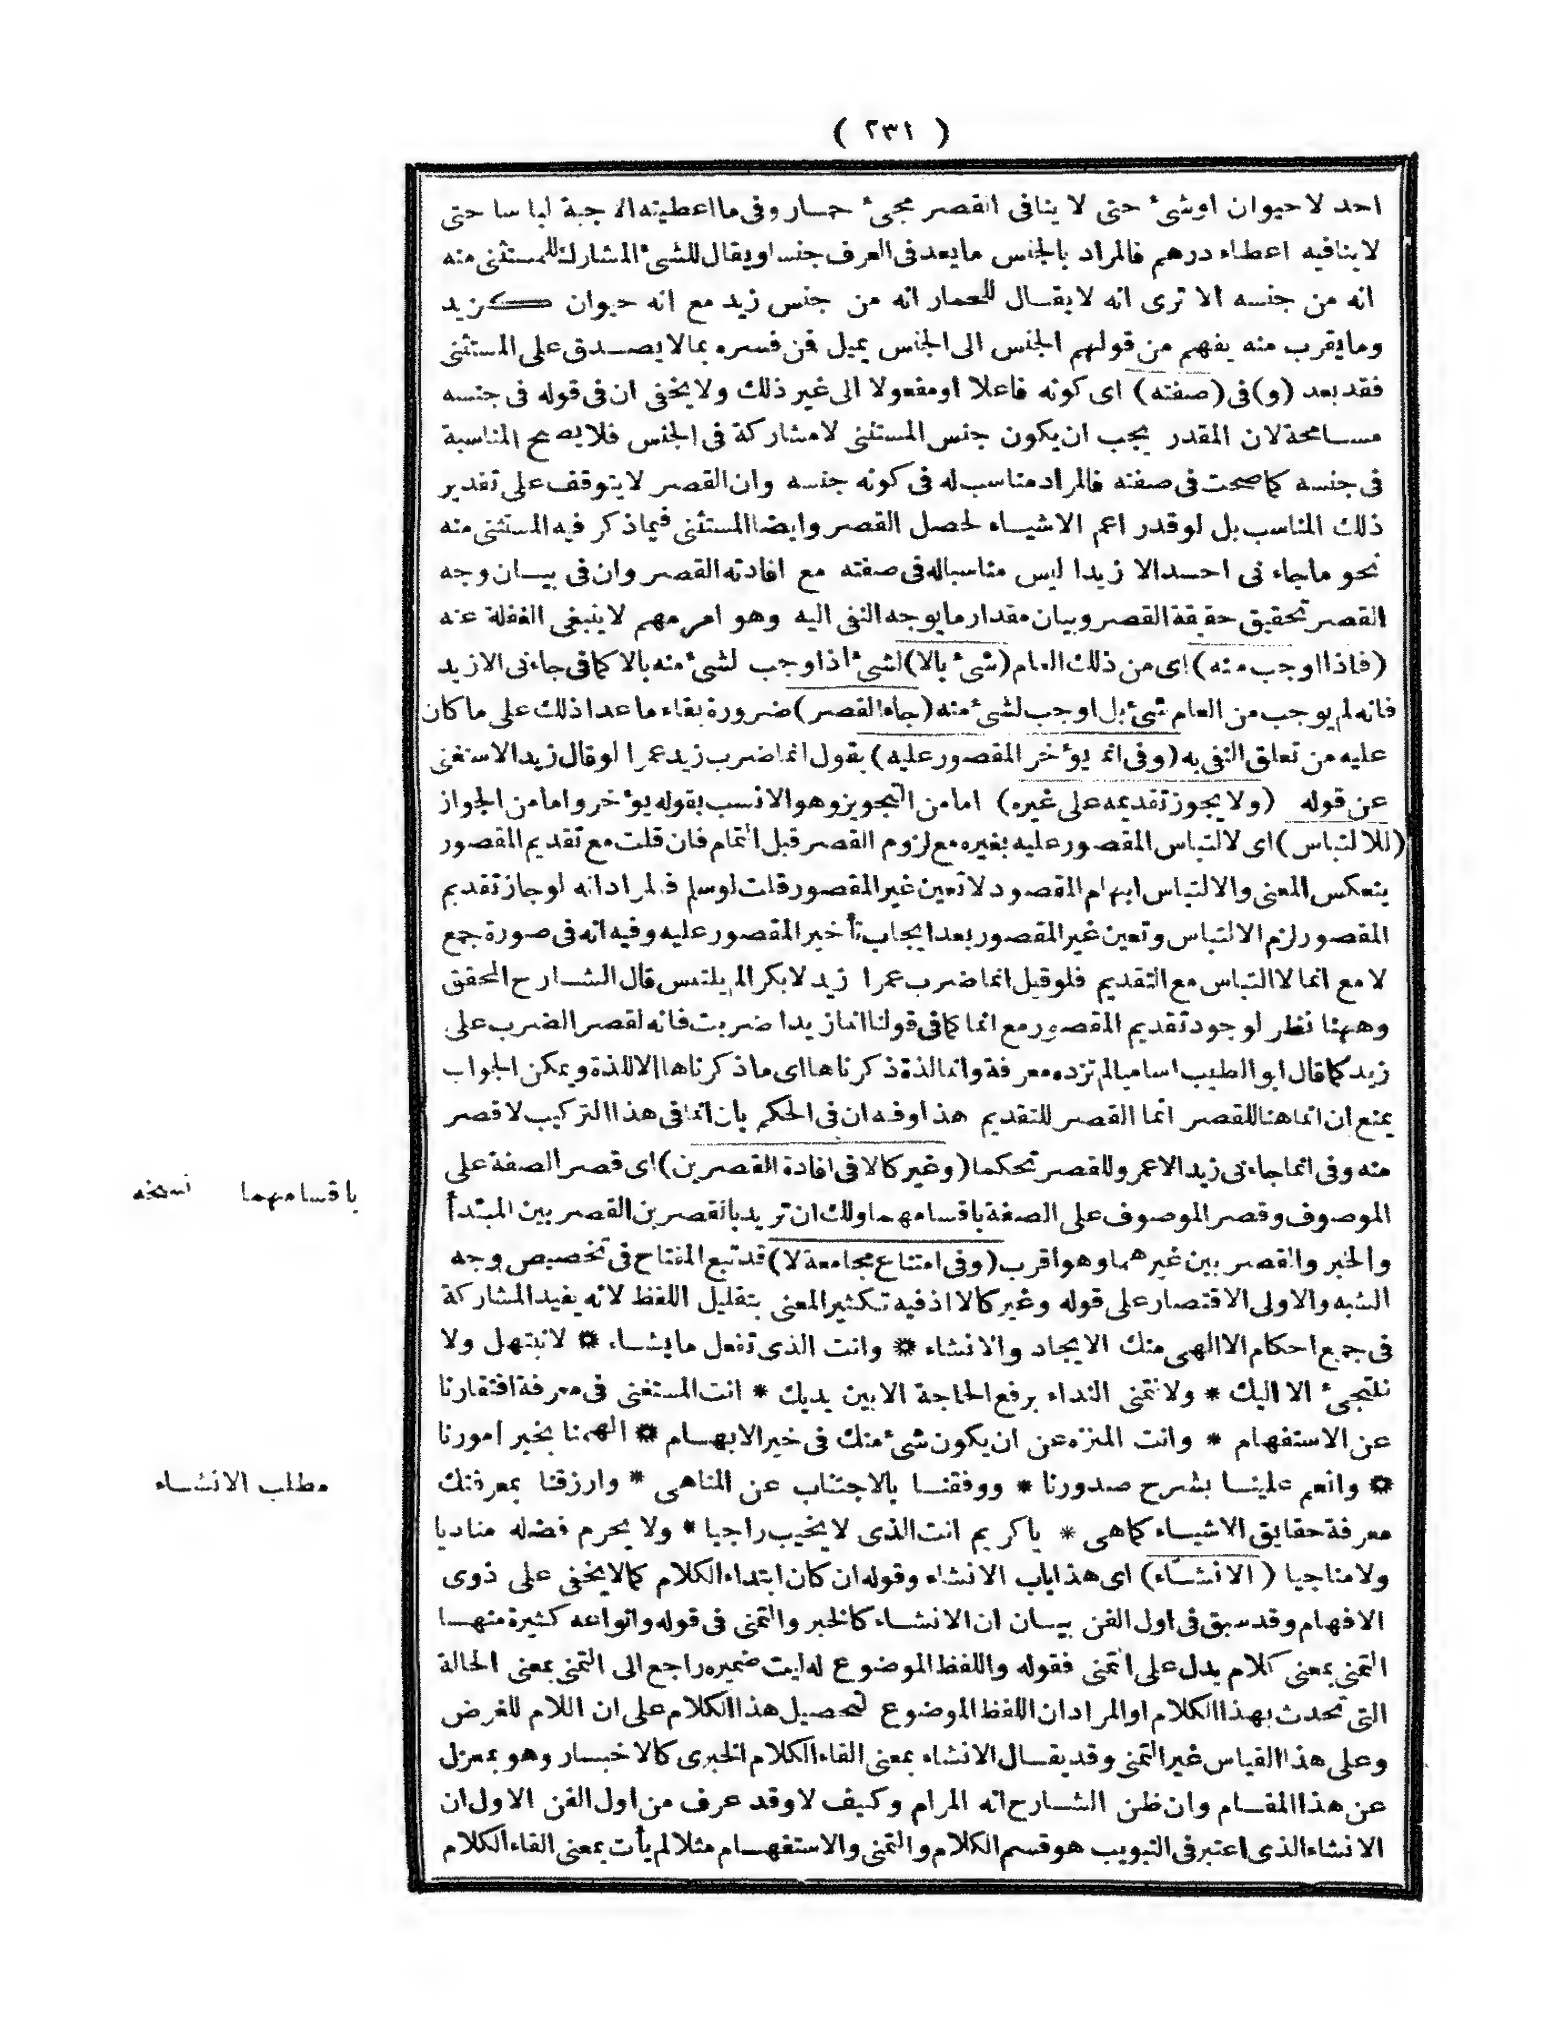 ( ٢٣١ )
احد لا حيوان اوشئ حتى لا ينافى القصر مجئ حمار وفى ما اعطيته الا جبة لباسا حتى
لا ينافيه اعطاء درهم فالمراد بالجنس ما يعد فى العرف جنسا ويقال للشئ المشارك للمستثنى منه
انه من جنسه الا ترى انه لا يقال للحمار انه من جنس زيد مع انه حيوان كزيد
وما يقرب منه يفهم من قولهم الجنس الى الجنس يميل فمن فسره بما لا يصدق على المستثنى
فقد بعد (و) فى (صفته) اى كونه فاعلا او مفعولا الى غير ذلك ولا يخفى ان فى قوله فى جنسه
مسامحة لان المقدر يجب ان يكون جنس المستثنى لا مشاركة فى الجنس فلا يصح المناسبة
فى جنسه كما صحت فى صفته فالمراد مناسب له فى كونه جنسه وان القصر لا يتوقف على تقدير
ذلك المناسب بل لو قدر اعم الاشياء لحصل القصر وايضا المستثنى فيما ذكر فيه المستثنى منه
نحو ما جاء نى احد الا زيدا ليس مناسبا له فى صفته مع افادته القصر وان فى بيان وجه
القصر تحقيق حقيقة القصر وبيان مقدار ما يوجه النفى اليه وهو امر مهم لا ينبغى الغفلة عنه
(فاذا اوجب منه) اى من ذلك العام (شئ بالا) لشئ اذا وجب لشئ منه بالا كما فى جاءنى الا زيد
فانه لم يوجب من العام شئ بل اوجب لشئ منه (جاء القصر) ضرورة بقاء ما عدا ذلك على ما كان
عليه من تعلق النفى به (وفى انما يؤخر المقصور عليه) بقول انما ضرب زيد عمرا لو قال زيدا لاستغنى
عن قوله (ولا يجوز تقديمه على غيره) اما من التجويز وهو الانسب بقوله يؤخر واما من الجواز
(للالتباس) اى لالتباس المقصور عليه بغيره مع لزوم القصر قبل التمام فان قلت مع تقديم المقصور
ينعكس المعنى والالتباس ابهام المقصود لا تعين غير المقصور قلت لو سلم فالمراد انه لو جاز تقديم
المقصور لزم الالتباس وتعين غير المقصور بعد ايجاب تأخير المقصور عليه وفيه انه فى صورة جمع
لا مع انما لا التباس مع التقديم فلو قيل انما ضرب عمرا زيد لا بكر الم يلتبس قال الشارح المحقق
وههنا نظر لوجود تقديم المقصور مع انما كما فى قولنا انما زيدا ضربت فانه لقصر الضرب على
زيد كما قال ابو الطيب اساميا لم تزده معرفة وانما لذة ذكرناها اى ما ذكرناها الا للذة ويمكن الجواب
بمنع ان انما هنا للقصر انما القصر للتقديم هذا وفه ان فى الحكم بان انما فى هذا التركيب لا قصر
منه وفى انما جاءنى زيد لا عمرو للقصر تحكما (وغير كالا فى افادة القصرين) اى قصر الصفة على
الموصوف وقصر الموصوف على الصفة باقسامهما ولك ان تريد بالقصرين القصر بين المبتدأ
والخبر والقصر بين غيرهما وهو اقرب (وفى امتناع مجامعة لا) قد تبع المفتاح فى تخصيص وجه
الشبه والاولى الاقتصار على قوله وغير كالا اذ فيه تكثير المعنى بتقليل اللفظ لانه يفيد المشاركة
فى جميع احكام الا الهى منك الايجاد والانشاء * وانت الذى تفعل ما يشاء * لا نبتهل ولا
نلتجئ الا اليك * ولا نتمنى النداء برفع الحاجة الا بين يديك * انت المستغنى فى معرفة افتقارنا
عن الاستفهام * وانت المنزه عن ان يكون شئ منك فى خير الابهام * الهمنا بخير امورنا
* وانعم علينا بشرح صدورنا * ووفقنا بالاجتناب عن المناهى * وارزقنا بمعرفتك
معرفة حقايق الاشياء كما هى * يا كريم انت الذى لا يخيب راجيا * ولا يحرم فضله مناديا
ولا مناجيا (الانشاء) اى هذا باب الانشاء وقوله ان كان ابتداء الكلام كما لا يخفى على ذوى
الافهام وقد سبق فى اول الفن بيان ان الانشاء كالخبر والتمنى فى قوله وانواعه كثيرة منها
التمنى بمعنى كلام يدل على التمنى فقوله واللفظ الموضوع له ليت ضميره راجع الى التمنى بمعنى الحالة
التى تحدث بهذا الكلام او المراد ان اللفظ الموضوع لتحصيل هذا الكلام على ان اللام للغرض
وعلى هذا القياس غير التمنى وقد يقال الانشاء بمعنى القاء الكلام الخبرى كالاخبار وهو بمعزل
عن هذا المقام وان ظن الشارح انه المرام وكيف لا وقد عرف من اول الفن الاول ان
الانشاء الذى اعتبر فى التبويب هو قسم الكلام والتمنى والاستفهام مثلا لم يأت بمعنى القاء الكلام
باقسامهما نسخه
مطلب الانشاء